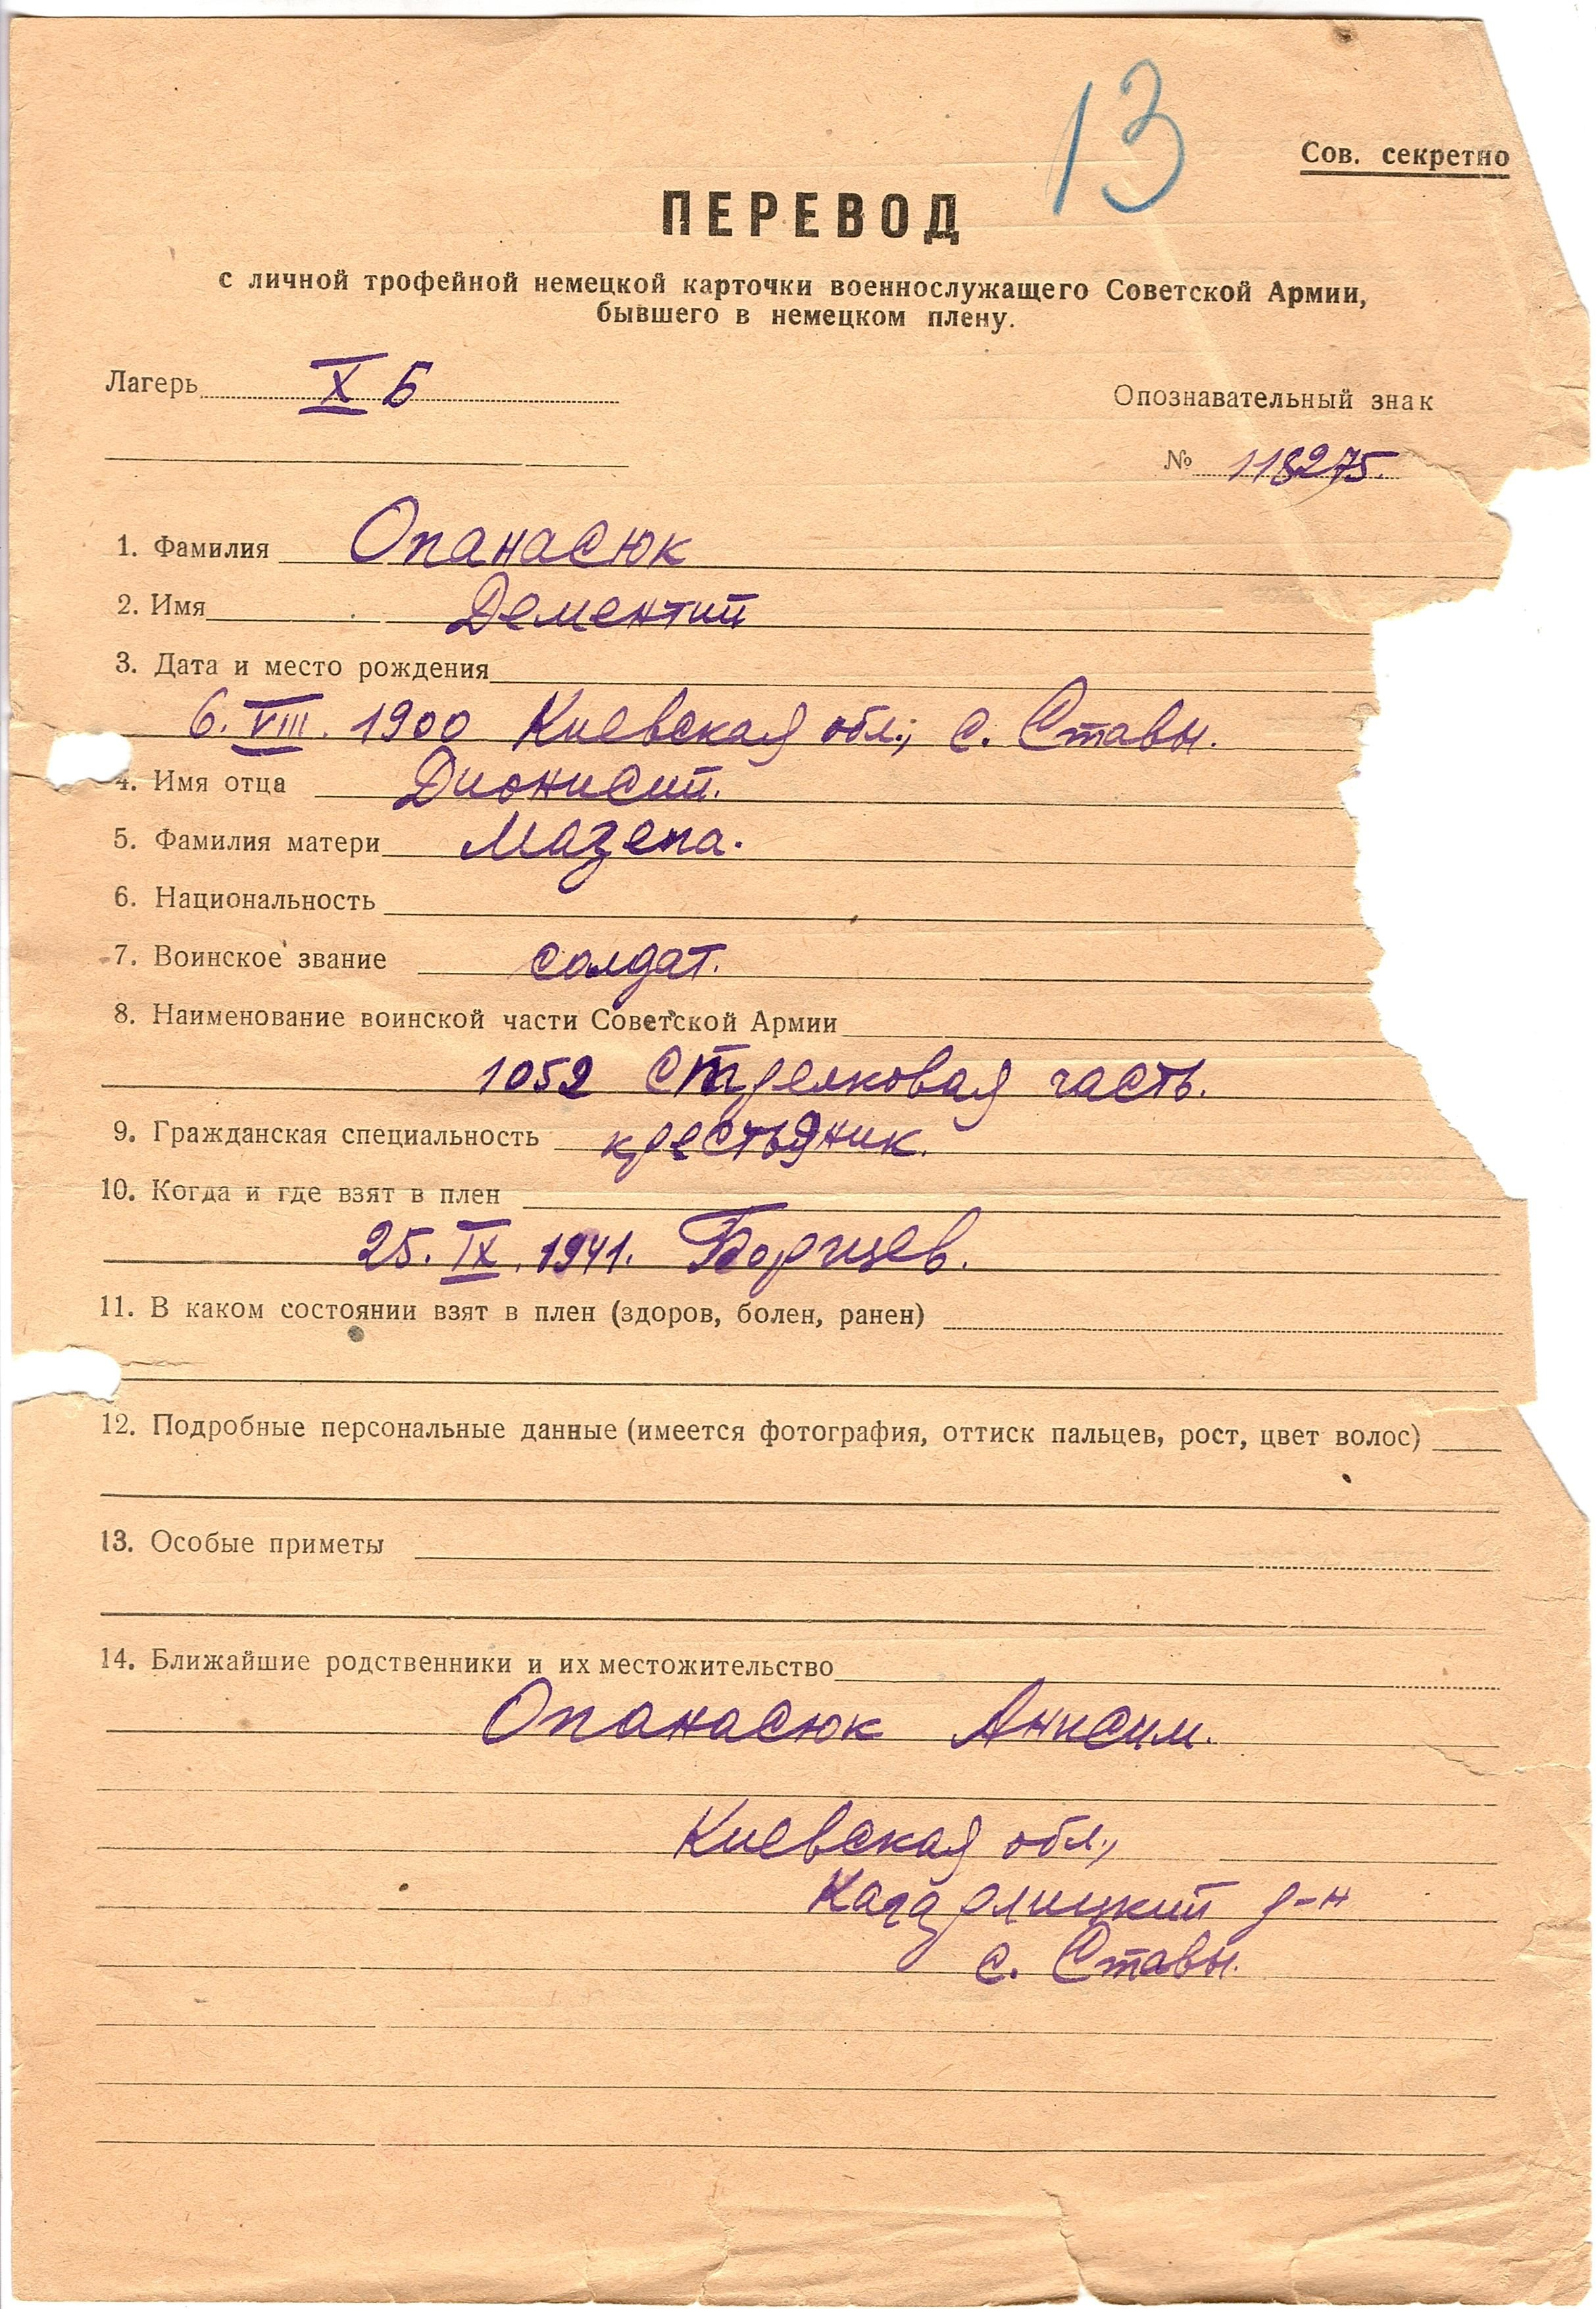 13
Сов. секретно
ПЕРЕВОД
с личной трофейной немецкой карточки военнослужащего Советской Армии,
бывшего в немецком плену.
Лагерь X Б
Опознавательный знак
№ 118275.
1. Фамилия Опанасюк
2. Имя Дементий
3. Дата и место рождения
6. VIII. 1900 Киевская обл., с. Ставы.
4. Имя отца Дионисий.
5. Фамилия матери Мазепа.
6. Национальность
7. Воинское звание солдат.
8. Наименование воинской части Советской Армии
1052 Стрелковая часть.
9. Гражданская специальность крестьяник.
10. Когда и где взят в плен
25. IX. 1941. Борищев.
11. В каком состоянии взят в плен (здоров, болен, ранен)
12. Подробные персональные данные (имеется фотография, оттиск пальцев, рост, цвет волос)
13. Особые приметы
14. Ближайшие родственники и их местожительство
Опанасюк Анисим.
Киевская обл.,
р-н
с. Ставы.